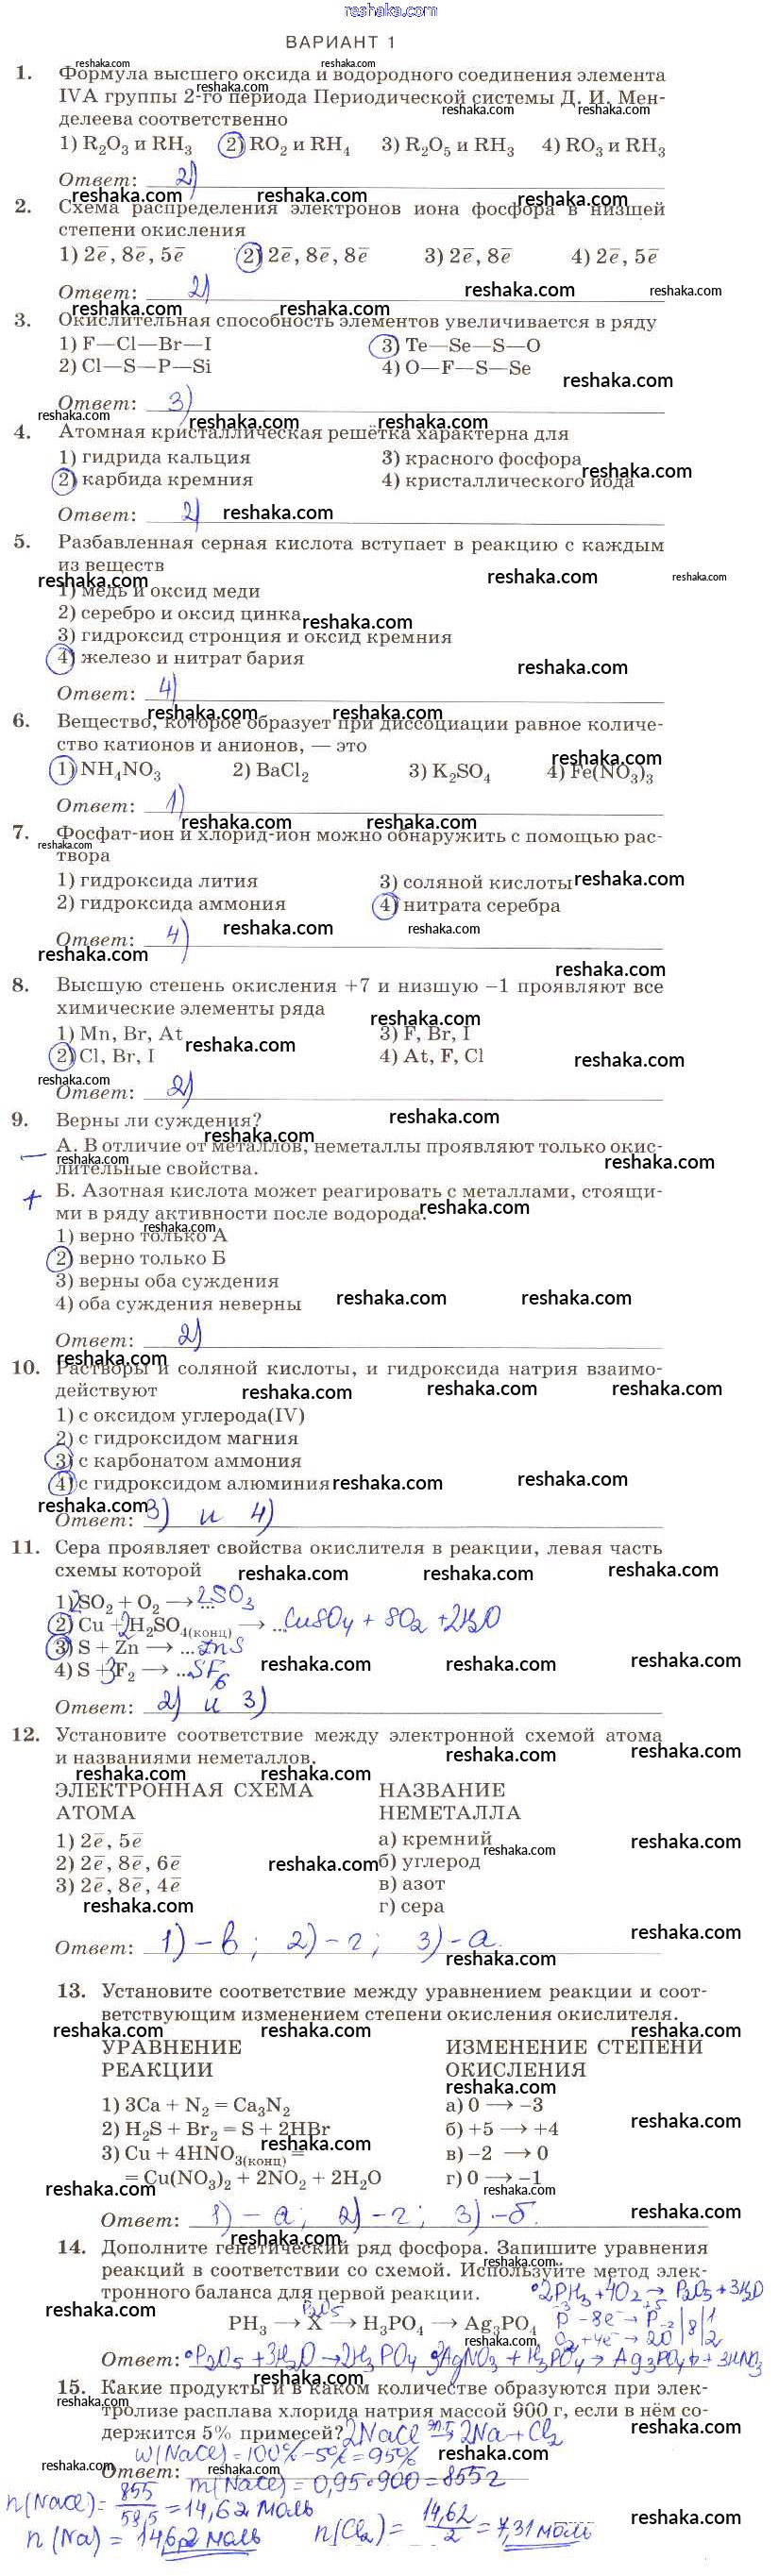 reshaka.com
ВАРИАНТ 1
1. Формула высшего оксида и водородного соединения элемента
IVA группы 2-го периода Периодической системы Д. И. Мен-
делеева соответственно
1) R₂O₃ и RH₃ 2) RO₂ и RH₄ 3) R₂O₅ и RH₃ 4) RO₃ и RH₃
Ответ: 2)
2. Схема распределения электронов иона фосфора в низшей
степени окисления
1) 2e̅, 8e̅, 5e̅ 2) 2e̅, 8e̅, 8e̅ 3) 2e̅, 8e̅ 4) 2e̅, 5e̅
Ответ: 2)
3. Окислительная способность элементов увеличивается в ряду
1) F—Cl—Br—I 3) Te—Se—S—O
2) Cl—S—P—Si 4) O—F—S—Se
Ответ: 3)
4. Атомная кристаллическая решётка характерна для
1) гидрида кальция 3) красного фосфора
2) карбида кремния 4) кристаллического иода
Ответ: 2)
5. Разбавленная серная кислота вступает в реакцию с каждым
из веществ
1) медь и оксид меди
2) серебро и оксид цинка
3) гидроксид стронция и оксид кремния
4) железо и нитрат бария
Ответ: 4)
6. Вещество, которое образует при диссоциации равное количе-
ство катионов и анионов, — это
1) NH₄NO₃ 2) BaCl₂ 3) K₂SO₄ 4) Fe(NO₃)₃
Ответ: 1)
7. Фосфат-ион и хлорид-ион можно обнаружить с помощью рас-
твора
1) гидроксида лития 3) соляной кислоты
2) гидроксида аммония 4) нитрата серебра
Ответ: 4)
8. Высшую степень окисления +7 и низшую –1 проявляют все
химические элементы ряда
1) Mn, Br, At 3) F, Br, I
2) Cl, Br, I 4) At, F, Cl
Ответ: 2)
9. Верны ли суждения?
— А. В отличие от металлов, неметаллы проявляют только окис-
лительные свойства.
+ Б. Азотная кислота может реагировать с металлами, стоящи-
ми в ряду активности после водорода.
1) верно только А
2) верно только Б
3) верны оба суждения
4) оба суждения неверны
Ответ: 2)
10. Растворы и соляной кислоты, и гидроксида натрия взаимо-
действуют
1) с оксидом углерода(IV)
2) с гидроксидом магния
3) с карбонатом аммония
4) с гидроксидом алюминия
Ответ: 3) и 4)
11. Сера проявляет свойства окислителя в реакции, левая часть
схемы которой
1) 2SO₂ + O₂ → ... 2SO₃
2) Cu + 2H₂SO₄(конц) → ... CuSO₄ + SO₂ + 2H₂O
3) S + Zn → ... ZnS
4) S + 3F₂ → ... SF₆
Ответ: 2) и 3)
12. Установите соответствие между электронной схемой атома
и названиями неметаллов.
ЭЛЕКТРОННАЯ СХЕМА НАЗВАНИЕ
АТОМА НЕМЕТАЛЛА
1) 2e̅, 5e̅ а) кремний
2) 2e̅, 8e̅, 6e̅ б) углерод
3) 2e̅, 8e̅, 4e̅ в) азот
г) сера
Ответ: 1) – в; 2) – г; 3) – а.
13. Установите соответствие между уравнением реакции и соот-
ветствующим изменением степени окисления окислителя.
УРАВНЕНИЕ ИЗМЕНЕНИЕ СТЕПЕНИ
РЕАКЦИИ ОКИСЛЕНИЯ
1) 3Ca + N₂ = Ca₃N₂ а) 0 → –3
2) H₂S + Br₂ = S + 2HBr б) +5 → +4
3) Cu + 4HNO₃(конц) = в) –2 → 0
= Cu(NO₃)₂ + 2NO₂ + 2H₂O г) 0 → –1
Ответ: 1) – а; 2) – г; 3) – б.
14. Дополните генетический ряд фосфора. Запишите уравнения
реакций в соответствии со схемой. Используйте метод элек-
тронного баланса для первой реакции. 2PH₃ + 4O₂ → P₂O₅ + 3H₂O
P₂O₅
PH₃ → X → H₃PO₄ → Ag₃PO₄ P⁻³ – 8e⁻ → P⁺⁵ | 8 | 1
O₂ + 4e⁻ → 2O⁻² | 2
Ответ: P₂O₅ + 3H₂O → 2H₃PO₄ 3AgNO₃ + H₃PO₄ → Ag₃PO₄↓ + 3HNO₃
15. Какие продукты и в каком количестве образуются при элек-
тролизе расплава хлорида натрия массой 900 г, если в нём со-
держится 5% примесей? 2NaCl → 2Na + Cl₂
w(NaCl) = 100% – 5% = 95%
Ответ: m(NaCl) = 0,95 · 900 = 855 г
n(NaCl) = 855/58,5 = 14,62 моль
n(Na) = 14,62 моль n(Cl₂) = 14,62/2 = 7,31 моль